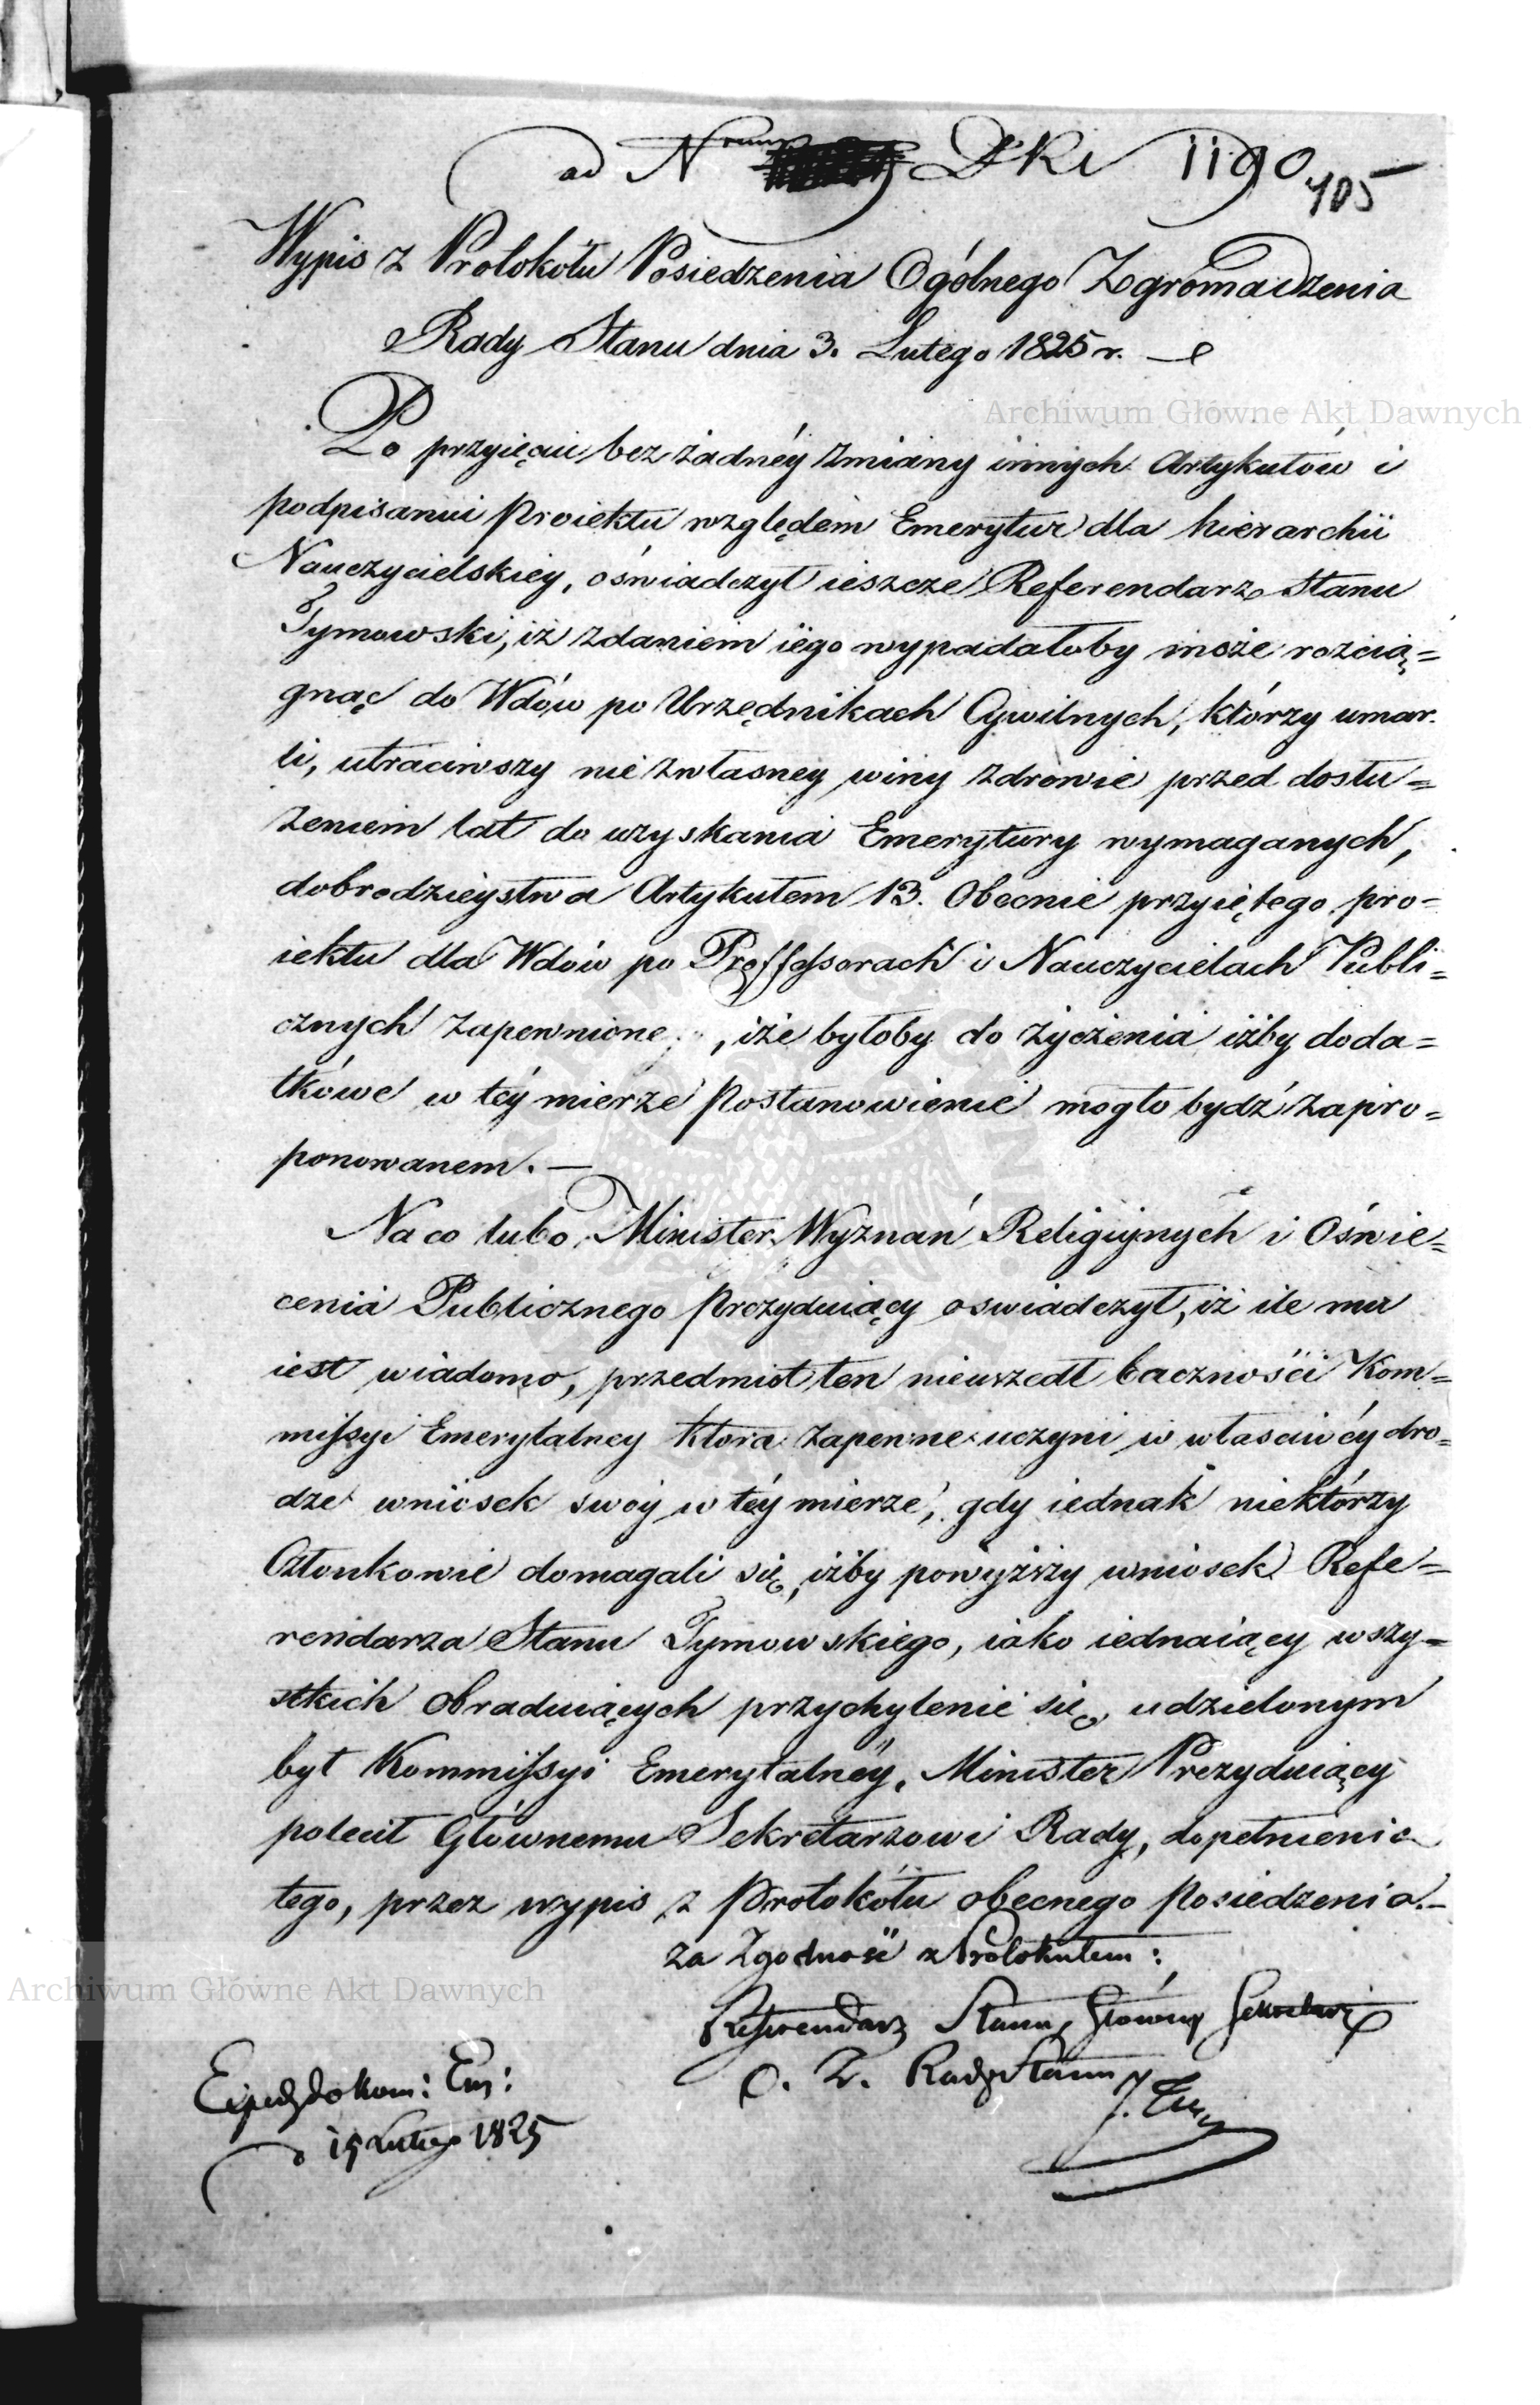 ad N Dki 1190
105
Wypis z Protokółu Posiedzenia Ogólnego Zgromadzenia
Rady Stanu dnia 3. Lutego 1825 r.
Archiwum Główne Akt Dawnych
Po przyięciu bez żadnéy zmiany innych Artykułów i
podpisaniu Proiektu względem Emerytur dla hierarchii
Nauczycielskiey, oświadczył ieszcze Referendarz Stanu
Tymowski, iż zdaniem iego wypadałoby może rozcią=
gnąć do Wdów po Urzędnikach Cywilnych, którzy umar-
li, utraciwszy nie z własney winy zdrowie przed dosłu=
żeniem lat do uzyskania Emerytury wymaganych,
dobrodzieystwa Artykułem 13. Obecnie przyiętego pro-
iektu dla Wdów po Professorach i Nauczycielach Publi-
cznych zapewnione, iże byłoby do życzenia iżby doda=
tkówe w téy mierze Postanowienie mogło bydź zapro=
ponowanem. —
Na co lubo Minister Wyznań Religiynych i Oświe=
cenia Publicznego Prezyduiący oswiadczył, iż ile mu
iest wiadomo, przedmiot ten nieuszedł baczności Kom=
missyi Emerytalney ktora zapewne uczyni w własciwéy dro=
dze wniosek swóy w téy mierze, gdy iednak niektórzy
Członkowie domagali się, iżby powyższy wniosek Refe=
rendarza Stanu Tymowskiego, iako iednaiący wszy=
stkich Obraduiących przychylenie się, udzielonym
był Kommissyi Emerytalnéy, Minister Prezyduiący
polecił Głównemu Sekretarzowi Rady, dopełnienie
tego, przez wypis z Protokółu obecnego Posiedzenia. —
za Zgodność z Protokułem:
Archiwum Główne Akt Dawnych
Referendarz Stanu, Główny Sekretarz
O. Z. Rady Stanu
Exped. do Kom: Em:
d 15 Lutego 1825